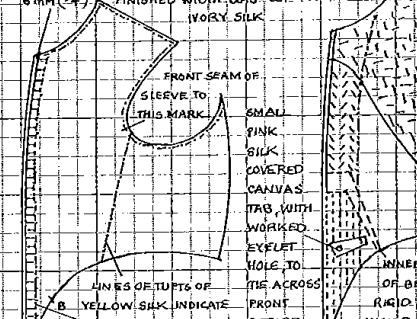 6 MM (¼")
FINISHED WIDTH
IVORY SILK
FRONT SEAM OF
SLEEVE TO
THIS MARK
SMALL
PINK
SILK
COVERED
CANVAS
TAB, WITH
WORKED
EYELET
HOLE, TO
TIE ACROSS
FRONT
LINES OF TUFTS OF
YELLOW SILK INDICATE
B
INNER
OF B
RIGID